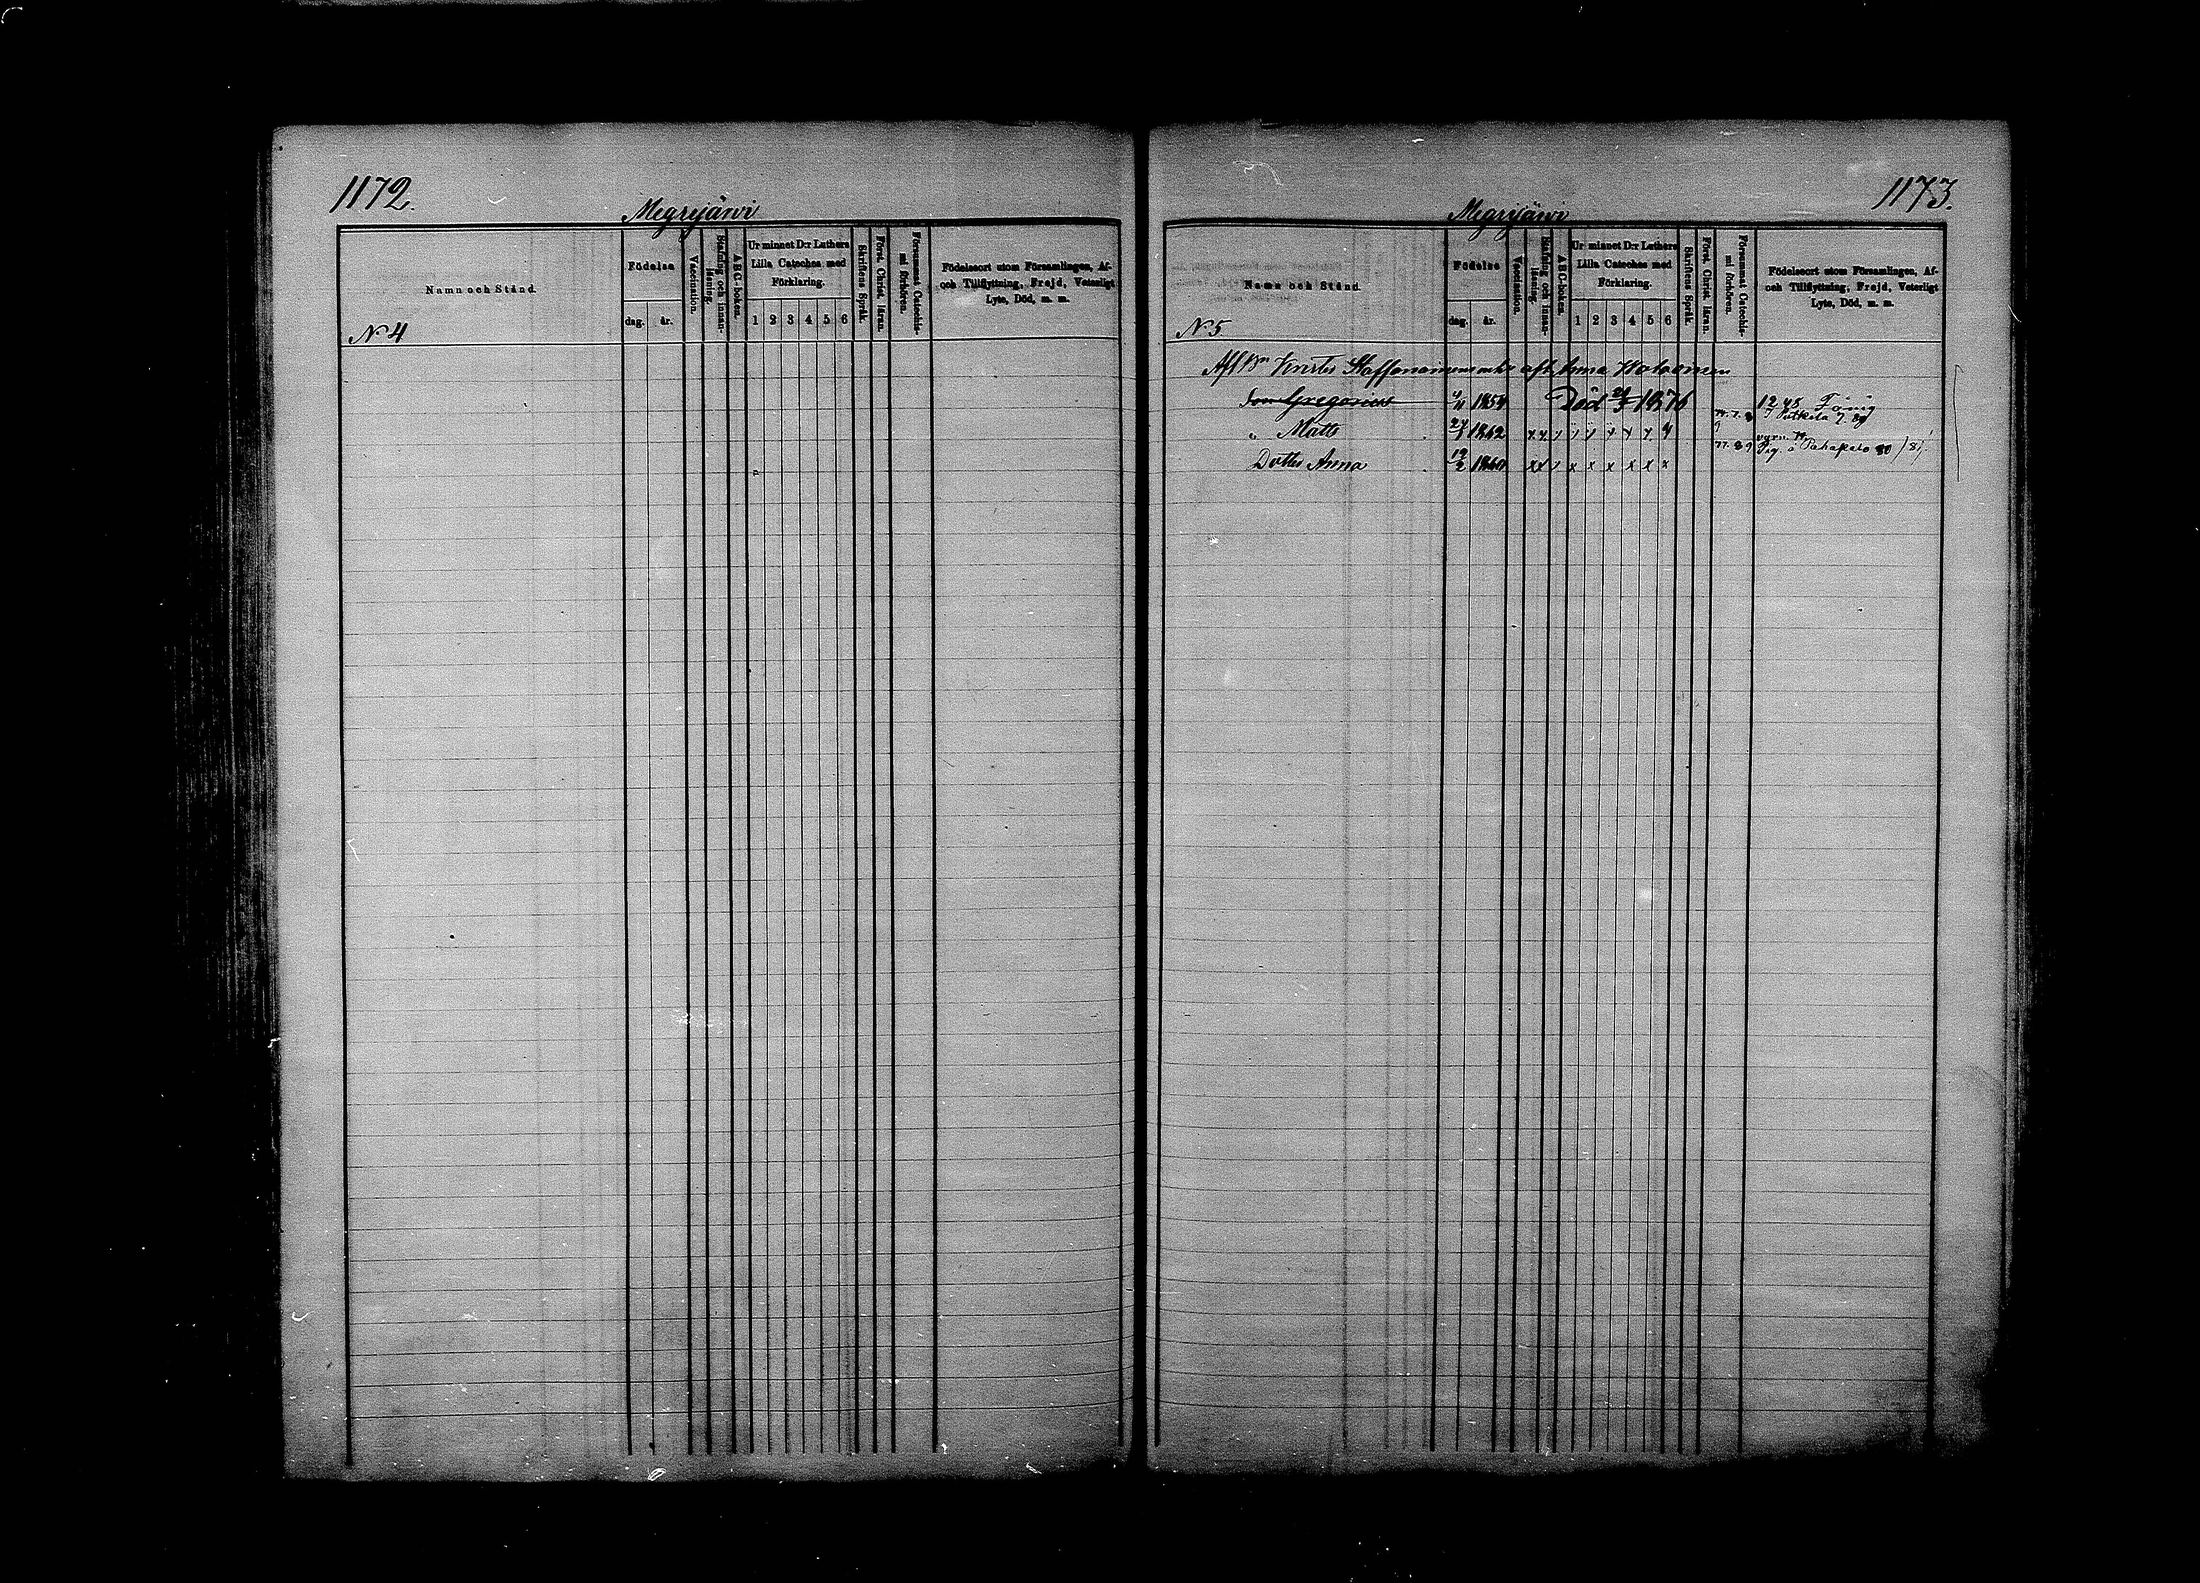 1172.
Megrijärvi
Namn och Stånd.
Födelse
dag. år.
Vaccination.
Stafning och innanläsning.
A B C-boken.
Ur minnet D:r Luthers Lilla Cateches med Förklaring.
1 2 3 4 5 6
Skriftens Språk.
Förest. Christ. läran.
Försummat Catechismi förhören.
Födelseort utom Församlingen, Af-
och Tillflyttning, Frejd, Veterligt
Lyte, Död, m. m.
N 4
1173.
Megrijärvi
Namn och Stånd.
Födelse
dag. år.
Vaccination.
Stafning och innanläsning.
A B C-boken.
Ur minnet D:r Luthers Lilla Cateches med Förklaring.
1 2 3 4 5 6
Skriftens Språk.
Förest. Christ. läran.
Försummat Catechismi förhören.
Födelseort utom Församlingen, Af-
och Tillflyttning, Frejd, Veterligt
Lyte, Död, m. m.
N 5
Afl Anna
Gregorius 1854 Död 1876
" Matts 1862
Dotter Anna 19/2 1860 x x x x x x x x